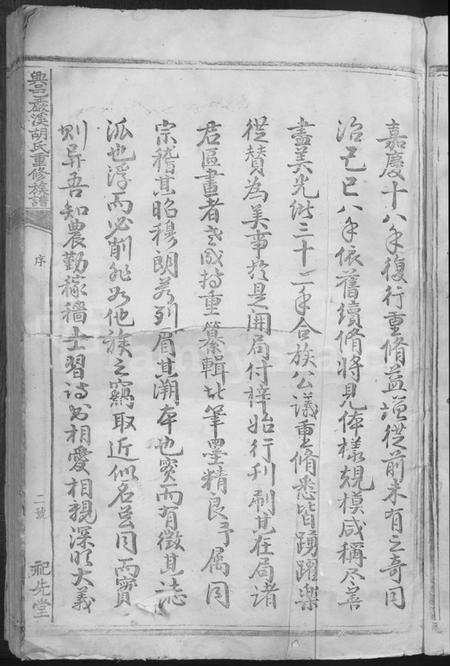 嘉慶十八年復行重脩益證從前未有之奇同
治己巳八年依舊續脩將見体樣規模咸稱尽善
盡美光緒三十二年合族公議重脩悉皆踴躍樂
從賛為美事於是開局付梓始行刊刷其在局諸
君區畫者老成持重纂輯者筆墨精良予属同
宗稽其昭穆朗若列眉其溯本也實而有徵其誌
派也浮而必削非若他族之竊取近似名并同而實
則异吾知農勤稼穡士習詩書相愛相親深明大義
興邑嚴溪胡氏重修族譜
序
二號
祀先堂